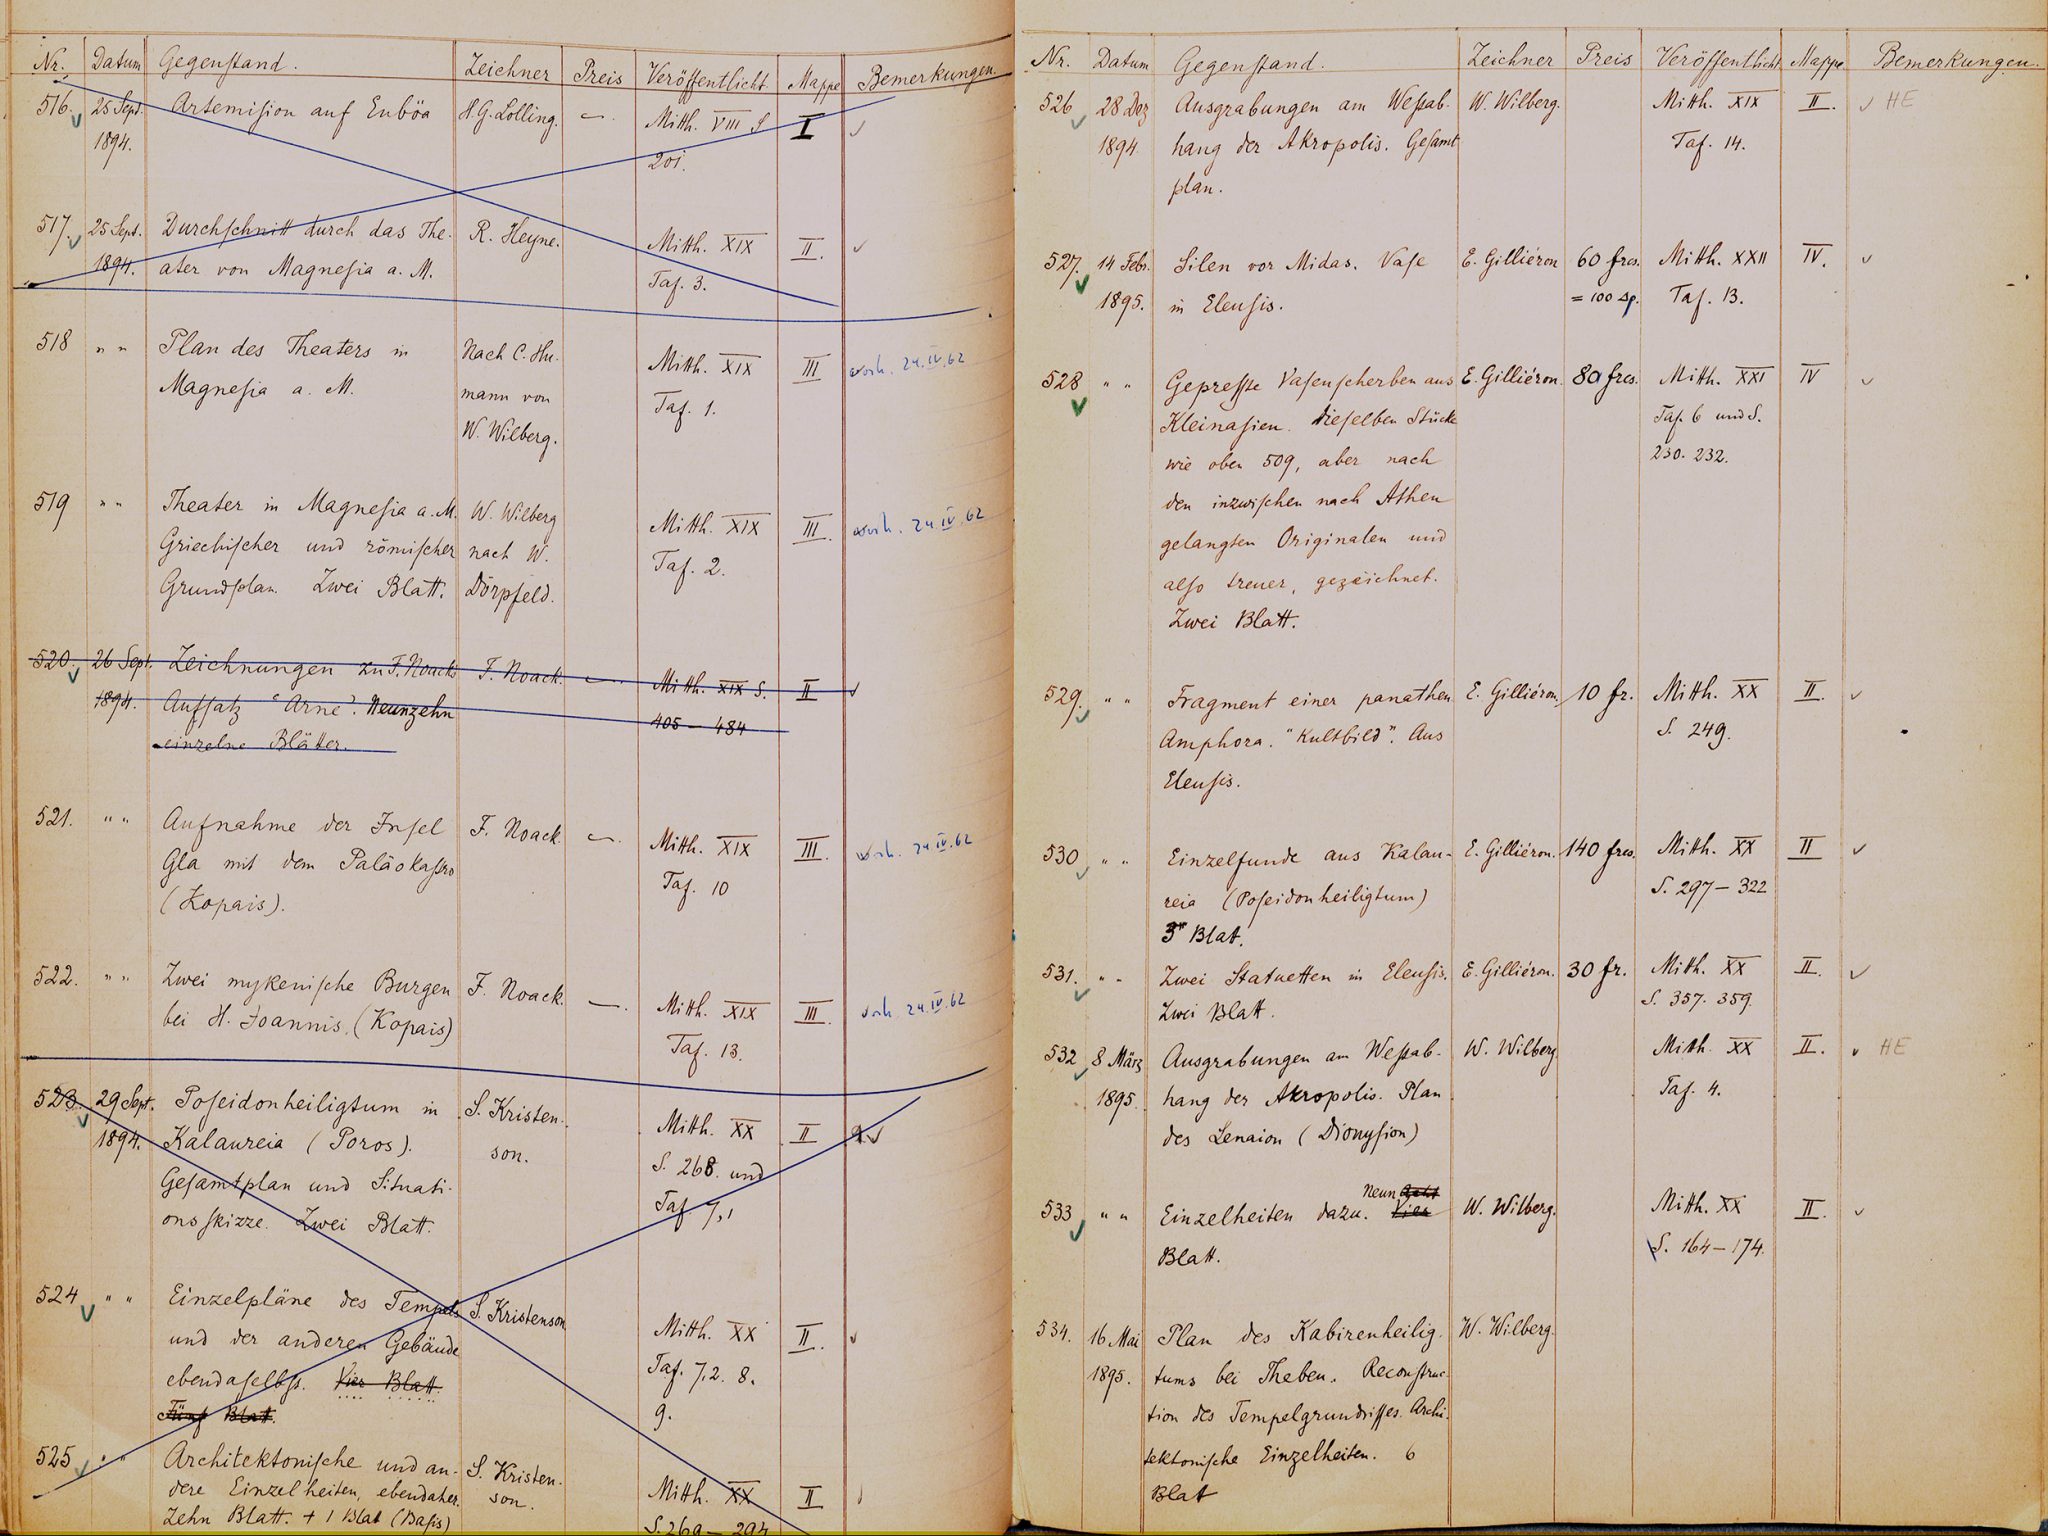 Nr. Datum Gegenstand. Zeichner Preis Veröffentlicht. Mappe Bemerkungen.
516. 25 Sept. Artemision auf Euböa H. G. Lolling. — Mitth. VIII S. I ✓
1894. 201.
517. 25 Sept. Durchschnitt durch das The- R. Heyne. Mitth. XIX II. ✓
1894. ater von Magnesia a. M. Taf. 3.
518 " " Plan des Theaters in Nach C. Hu- Mitth. XIX III vorh. 24.IV.62
Magnesia a. M. mann von Taf. 1.
W. Wilberg.
519 " " Theater in Magnesia a. M. W. Wilberg Mitth. XIX III. vorh. 24.IV.62
Griechischer und römischer nach W. Taf. 2.
Grundplan. Zwei Blatt. Dörpfeld.
520. 26 Sept. Zeichnungen zu F. Noacks F. Noack. — Mitth. XIX S. II ✓
1894. Aufsatz "Arne". Neunzehn 405 – 484
einzelne Blätter.
521. " " Aufnahme der Insel F. Noack. — Mitth. XIX III. vorh. 24.IV.62
Gla mit dem Paläokastro Taf. 10
(Kopais).
522. " " Zwei mykenische Burgen F. Noack. — Mitth. XIX III. vorh. 24.IV.62
bei H. Joannis. (Kopais) Taf. 13.
523 29 Sept. Poseidonheiligtum in S. Kristen- Mitth. XX II ✓
1894. Kalaureia (Poros). son. S. 268. und
Gesamtplan und Situati- Taf 7,1
onsskizze. Zwei Blatt.
524 " " Einzelpläne des Tempels S. Kristenson Mitth. XX II. ✓
und der anderen Gebäude Taf. 7,2. 8.
ebendaselbst. Vier Blatt. 9.
Fünf Blatt.
525 " " Architektonische und an- S. Kristen- Mitth. XX II ✓
dere Einzelheiten, ebendaher. son. S. 269 – 294
Zehn Blatt. + 1 Blat (Basis)
Nr. Datum Gegenstand. Zeichner Preis Veröffentlicht Mappe Bemerkungen.
526 28 Dez Ausgrabungen am Westab- W. Wilberg. Mitth. XIX II. ✓ HE
1894 hang der Akropolis. Gesamt Taf. 14.
plan.
527. 14 Febr. Silen vor Midas. Vase E. Gilliéron 60 frcs. Mitth. XXII IV. ✓
1895. in Eleusis. = 100 Dp. Taf. 13.
528 " " Gepresste Vasenscherben aus E. Gilliéron. 80 frcs. Mitth. XXI IV ✓
Kleinasien. Dieselben Stücke Taf. 6 und S.
wie oben 509, aber nach 230. 232.
den inzwischen nach Athen
gelangten Originalen und
also treuer, gezeichnet.
Zwei Blatt.
529. " " Fragment einer panathen. E. Gilliéron. 10 fr. Mitth. XX II. ✓
Amphora. "Kultbild". Aus S. 249.
Eleusis.
530 " " Einzelfunde aus Kalau- E. Gilliéron. 140 frcs. Mitth. XX II ✓
reia (Poseidonheiligtum) S. 297 – 322
3 Blat.
531. " " Zwei Statuetten in Eleusis. E. Gilliéron. 30 fr. Mitth. XX II. ✓
Zwei Blatt. S. 357. 359.
532 8 März Ausgrabungen am Westab- W. Wilberg Mitth. XX II. ✓ HE
1895. hang der Akropolis. Plan Taf. 4.
des Lenaion (Dionysion)
Neun Acht
533 " " Einzelheiten dazu. Vier W. Wilberg. Mitth. XX II. ✓
Blatt. S. 164 – 174.
534. 16 Mai Plan des Kabirenheilig- W. Wilberg.
1895. tums bei Theben. Reconstruc-
tion des Tempelgrundrisses. Archi-
tektonische Einzelheiten. 6
Blat